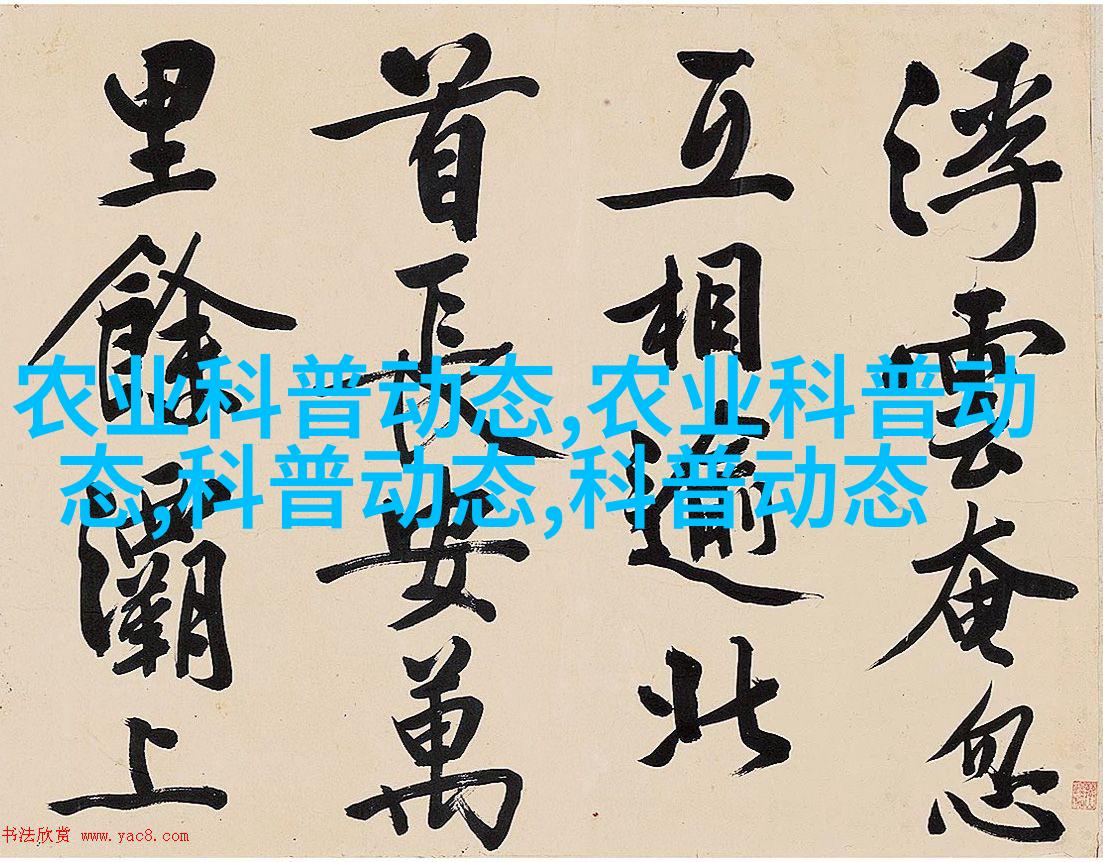 浮雲奄忽
互相逾北
首長安萬
里餘灞上
农业科普动态,农业科普动
态,科普动态,科普动态
书法欣赏 www.yac8.com